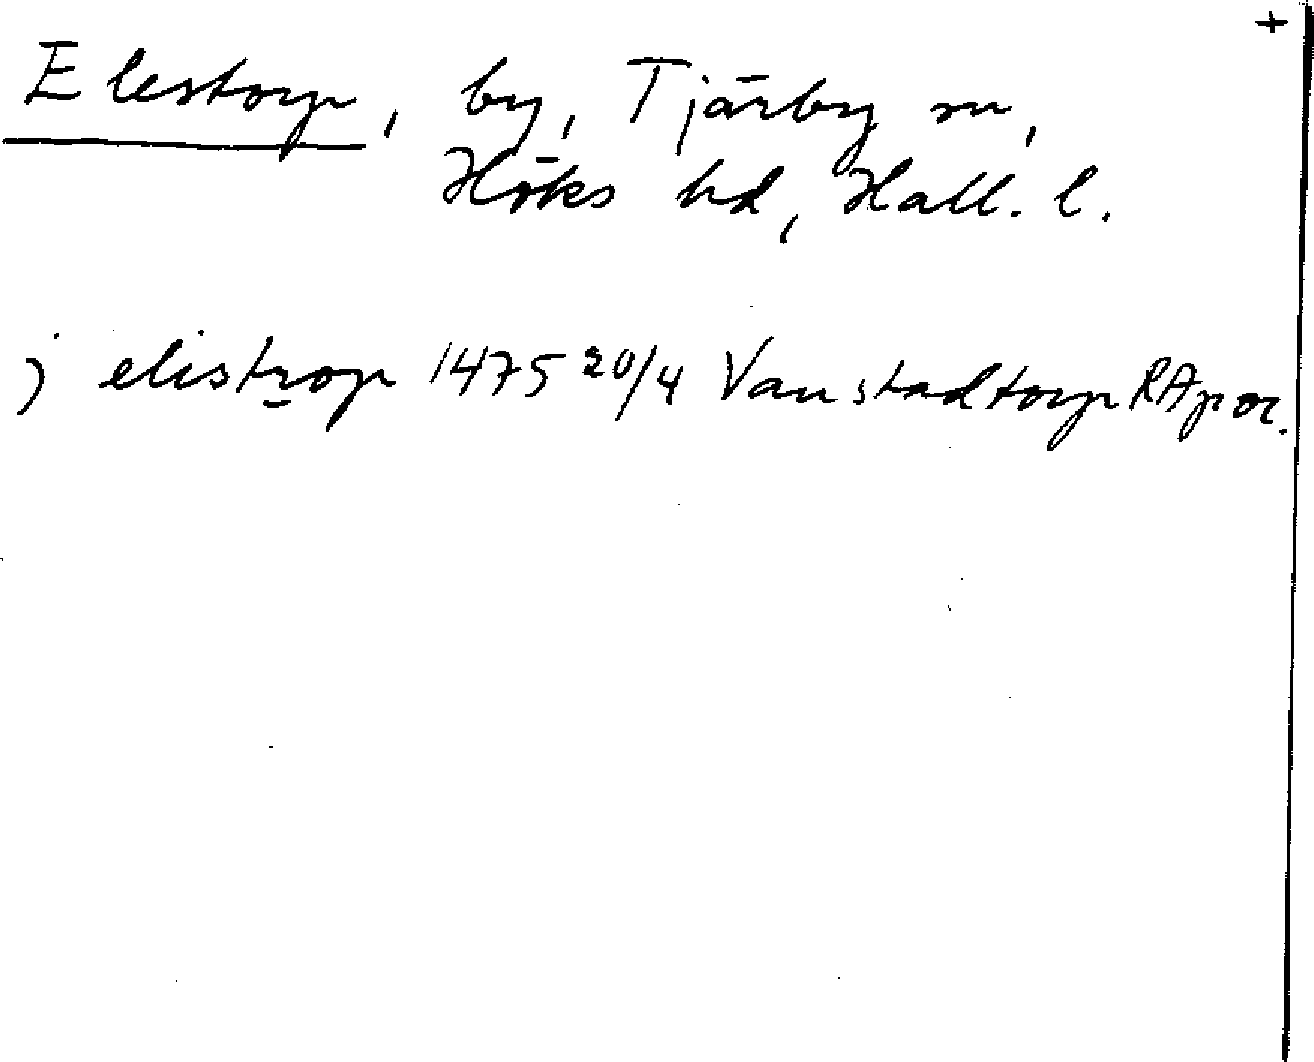 +
Elestorp, by, Tjärby sn,
Höks hd, Hall. l.
j elistrop 1475 20/4 Vanstadtorp RApor.